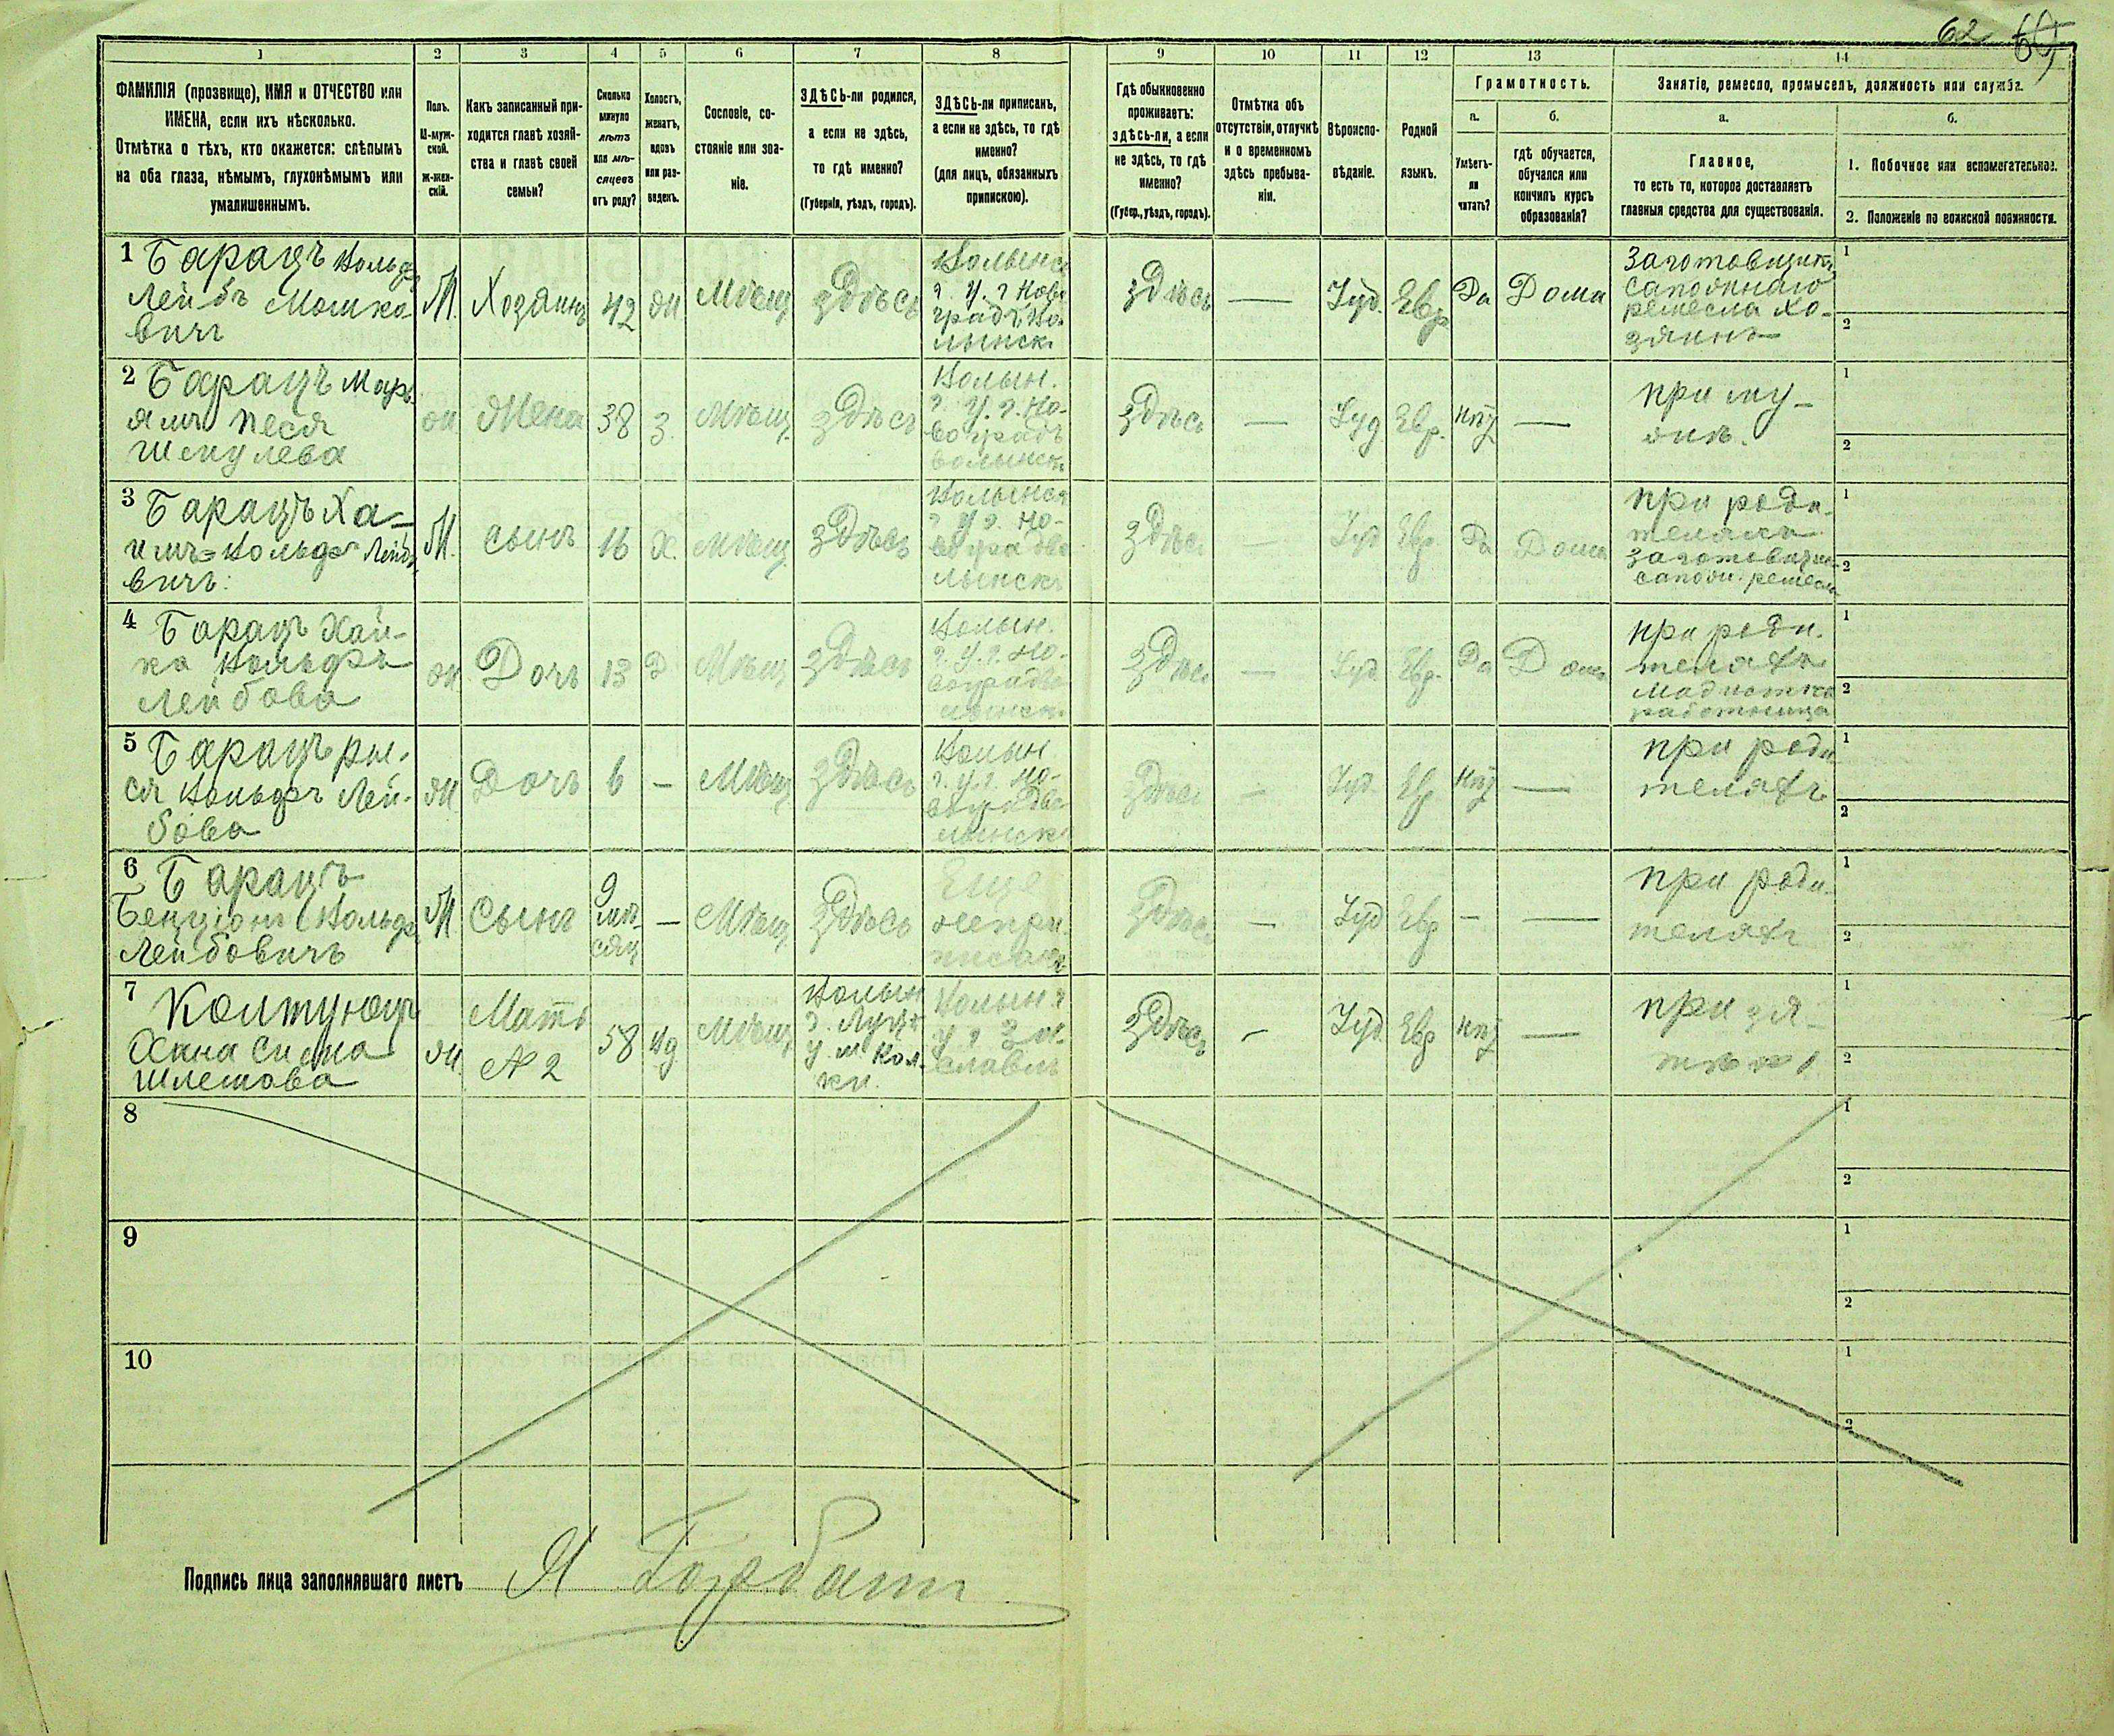 62
1 2 3 4 5 6 7 8 9 10 11 12 13 14
ФАМИЛІЯ (прозвище), ИМЯ и ОТЧЕСТВО или
ИМЕНА, если ихъ нѣсколько.
Отмѣтка о тѣхъ, кто окажется: слѣпымъ
на оба глаза, нѣмымъ, глухонѣмымъ или
умалишеннымъ.
Полъ.
М-муж-
ской.
ж-жен-
скій.
Какъ записанный при-
ходится главѣ хозяй-
ства и главѣ своей
семьи?
Сколько
минуло
лѣтъ
или мѣ-
сяцевъ
отъ роду?
Холостъ,
женатъ,
вдовъ
или раз-
веденъ.
Сословіе, со-
стояніе или зва-
ніе.
ЗДѢСЬ-ли родился,
а если не здѣсь,
то гдѣ именно?
(Губернія, уѣздъ, городъ).
ЗДѢСЬ-ли приписанъ,
а если не здѣсь, то гдѣ
именно?
(для лицъ, обязанныхъ
припискою).
Гдѣ обыкновенно
проживаетъ:
здѣсь-ли, а если
не здѣсь, то гдѣ
именно?
(Губер., уѣздъ, городъ).
Отмѣтка объ
отсутствіи, отлучкѣ
и о временномъ
здѣсь пребыва-
ніи.
Вѣроиспо-
вѣданіе.
Родной
языкъ.
Грамотность.
а.
Умѣетъ-
ли
читать?
б.
гдѣ обучается,
обучался или
кончилъ курсъ
образованія?
Занятіе, ремесло, промыселъ, должность или служба.
а.
Главное,
то есть то, которое доставляетъ
главныя средства для существованія.
б.
1. Побочное или вспомогательное.
2. Положеніе по воинской повинности.
1 Барацъ Вольфъ
Лейбъ Мошко
вичъ
М. Хозяинъ 42 Ж Мѣщ здѣсь
Волынск
г. у. г Нов
градъ Во
лынск
здѣсь — Іуд. Евр Да Дома
Заготовщикъ
сапожнаго
ремесла хо-
зяинъ
1
2
2 Барацъ Марь
ямъ Песя
Шепулева
Ж Жена 38 З. Мѣщ. здѣсь
Волын.
г. у. г. Но-
воградъ
волынск
здѣсь — Іуд Евр. нѣт —
при му-
жѣ.
1
2
3 Барацъ Ха-
имъ=Вольфъ Лейбо
вичъ.
М. сынъ 16 Х. Мѣщ. здѣсь
Волынск
г у г. Но-
воградво
лынскъ
здѣсь — Іуд Евр. Да Дома
при роди-
теляхъ
заготовщик
сапожн. ремесла
1
2
4 Барацъ Хай-
ка Вольфъ
Лейбова
Ж Дочь 13 Д Мѣщ здѣсь
Волын.
г. у. г. Но-
воградво
лынск.
здѣсь — Іуд. Евр. Да Дома
при роди-
теляхъ
модистка
работница
1
2
5 Барацъ ры-
ся Вольфъ Лей-
бова
Ж Дочь 6 — Мѣщ здѣсь
Волын
г. у. г. Но-
воградво
лынск
здѣсь — Іуд. Евр нѣт —
при роди
теляхъ
1
2
6 Барацъ
Бенціонъ Вольфъ
Лейбовичъ
М Сынъ
9
мѣ-
сяц
— Мѣщ. здѣсь
Еще
непри-
писанъ
здѣсь — Іуд Евр — —
при роди-
теляхъ
1
2
7 Колтунъ
Хана Сима
Шлемова
Ж.
Мать
№ 2
58 Вд Мѣщ
Волын
г. Луцк
у. м Кол-
ки.
Волын г
у г За-
славль
здѣсь — Іуд. Евр нѣт —
при зя-
тѣ № 1
1
2
8
1
2
9
1
2
10
1
2
Подпись лица заполнявшаго листъ